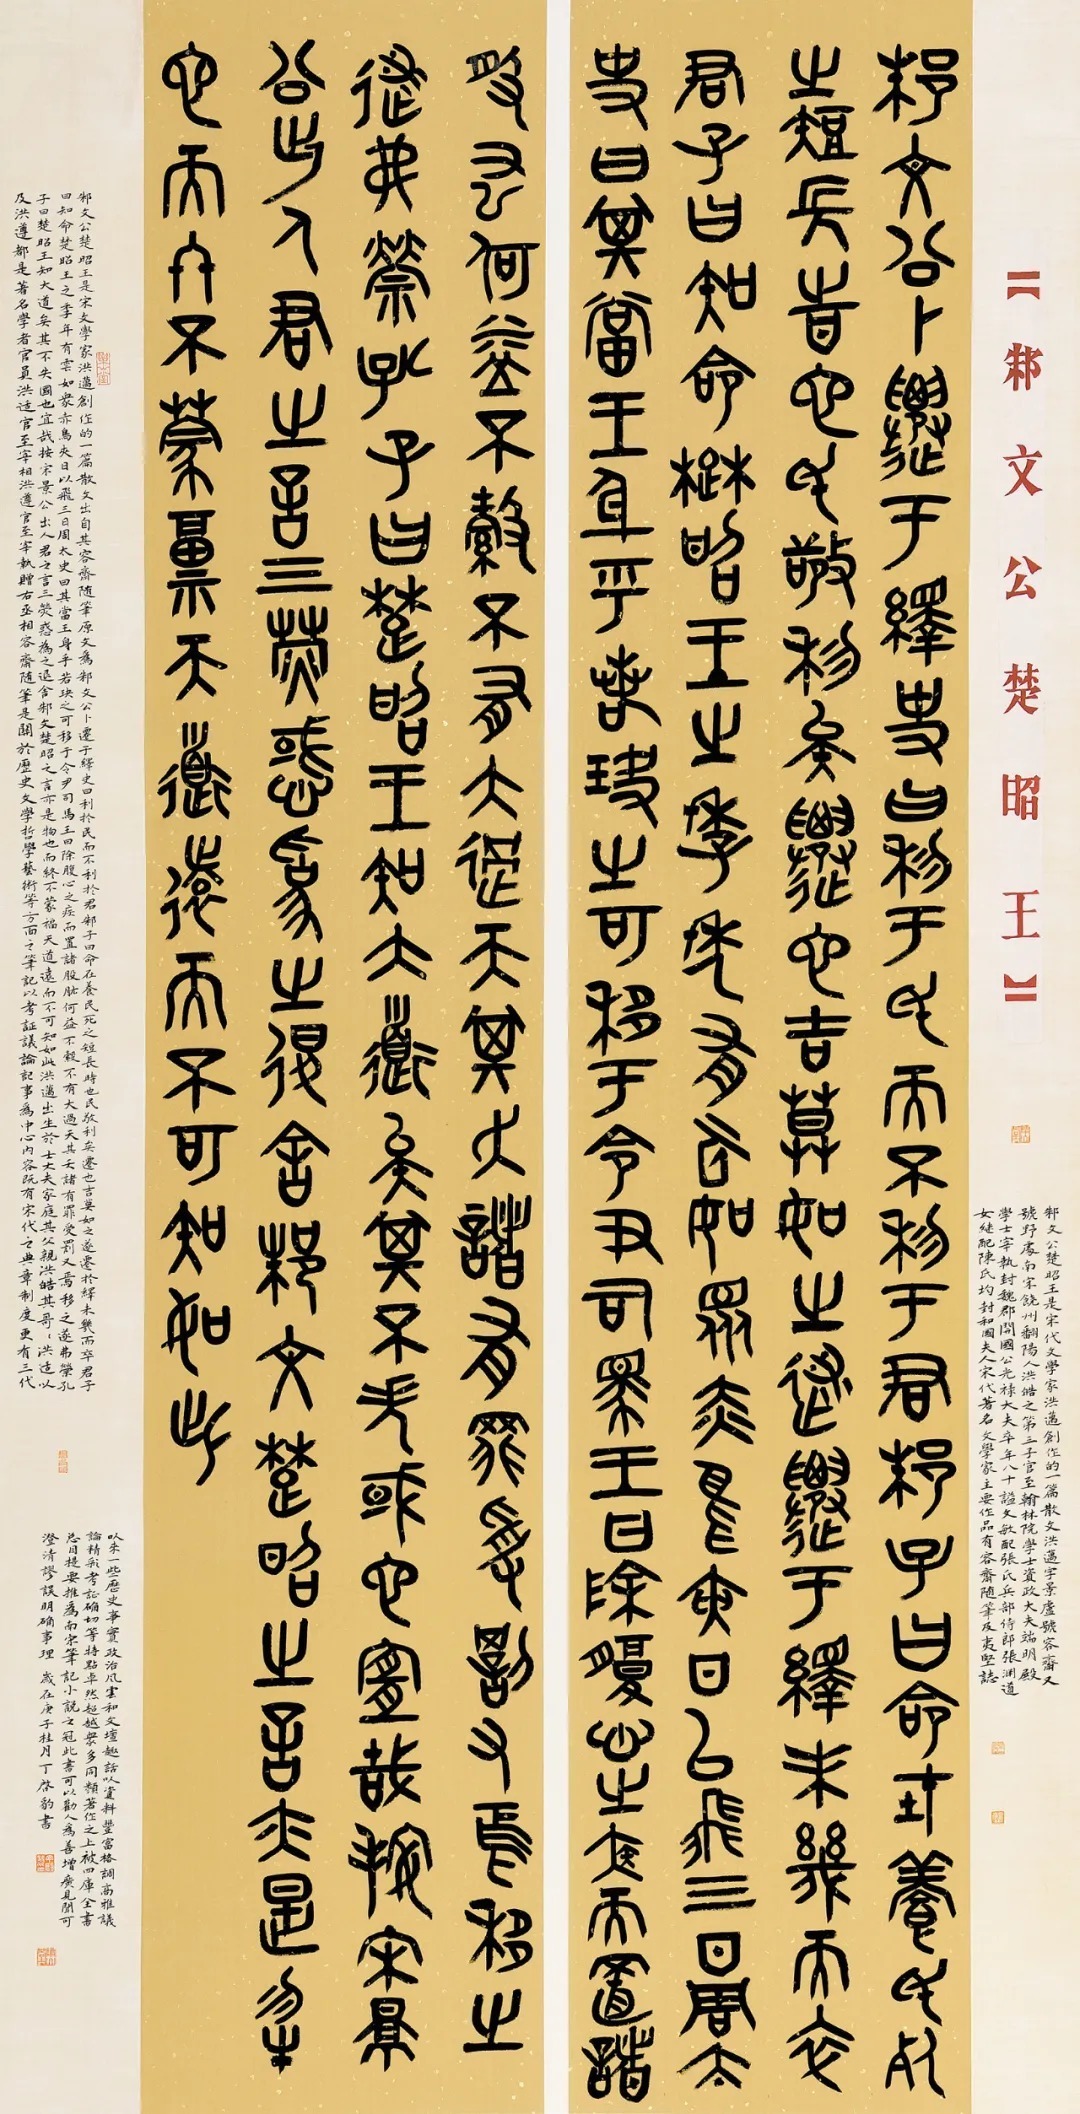 【邾文公楚昭王】
邾文公楚昭王是宋代文學家洪邁創作的一篇散文洪邁字景盧號容齋又
號野處南宋饒州鄱陽人洪皓之第三子官至翰林院學士資政大夫端明殿
學士宰執封魏郡開國公光祿大夫卒年八十謚文敏配張氏兵部侍郎張淵道
女繼配陳氏均封和國夫人宋代著名文學家主要作品有容齋隨筆及夷堅誌
邾文公卜遷于繹史曰利于民而不利于君邾子曰命在養民死
之短長時也民敬利矣遷也吉莫如之遂遷于繹未幾而卒
君子曰知命楚昭王之季年有雲如眾赤鳥夾日以飛三日周太
史曰其當王身乎若玦之可移于令尹司馬王曰除腹心之疾而置諸
股肱何益不穀不有大過天其夭諸有罪受罰又焉移之
遂弗禜孔子曰楚昭王知大道矣其不失國也宜哉按宋景
公出人君之言三熒惑為之退舍邾文楚昭之言亦是物
也而終不蒙福天道遠而不可知如此
邾文公楚昭王是宋文學家洪邁創作的一篇散文出自其容齋隨筆原文為邾文公卜遷于繹史曰利於民而不利於君邾子曰命在養民死之短長時也民敬利矣遷也吉莫如之遂遷於繹未幾而卒君子
曰知命楚昭王之季年有雲如衆赤鳥夾日以飛三日周太史曰其當王身乎若玦之可移于令尹司馬王曰除腹心之疾而置諸股肱何益不穀不有大過天其夭諸有罪受罰又焉移之遂弗禜孔
子曰楚昭王知大道矣其不失國也宜哉按宋景公出人君之言三熒惑為之退舍邾文楚昭之言亦是物也而終不蒙福天道遠而不可知如此洪邁出生於士大夫家庭其父親洪皓其哥哥洪适以
及洪遵都是著名學者官員洪适官至宰相洪遵官至宰執贈右丞相容齋隨筆是關於歷史文學哲學藝術等方面之筆記以考証議論記事為中心內容既有宋代之典章制度更有三代
以來一些歷史事實政治風雲和文壇趣話以資料豐富格調高雅議
論精彩考証确切等特點卓然超越衆多同類著作之上被四庫全書
总目提要推為南宋筆記小說之冠此書可以勸人為善增廣見聞可
澄清謬誤明确事理 歲在庚子桂月丁啓豹書